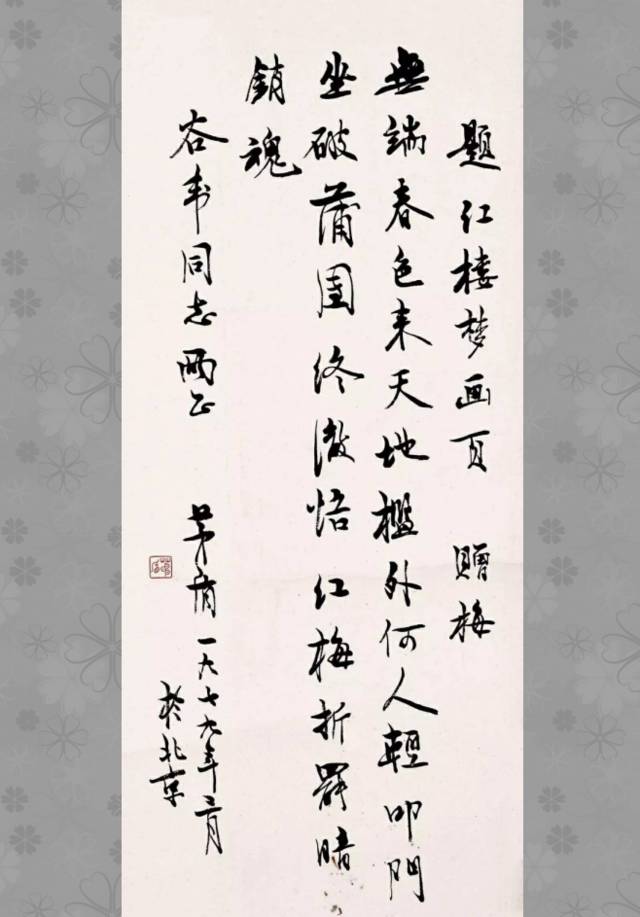 题红楼梦画页 赠梅
無端春色来天地檻外何人輕叩門
坐破蒲團终澈悟红梅折罷暗
銷魂
谷韦同志两正
茅盾一九七九年月
於北京